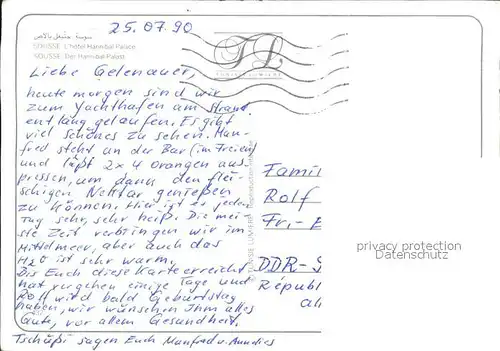 25.07.90
سوسة
SOUSSE L'hôtel Hannibal Palace
SOUSSE Der Hannibal Palast
TL
Liebe Gelenauer,
heute morgen sind wir
zum Yachthafen am Strand
entlang gelaufen. Es gibt
viel schönes zu sehen. Man-
fred steht an der Bar (im Freien)
und läßt 2 x 4 Orangen aus-
pressen, um dann den flei-
schigen Nektar genießen
zu können. Hier ist es jeden
Tag sehr, sehr heiß. Die mei-
ste Zeit verbringen wir im
Mittelmeer, aber auch das
H2O ist sehr warm.
Bis Euch diese Karte erreicht
hat vergehen einige Tage und
Rolf wird bald Geburtstag
haben, wir wünschen Ihm alles
Gute, vor allem Gesundheit.
Tschüßi sagen Euch Manfred u. Annelies
Famil
Rolf
Fr.-
DDR-
Républ
privacy protection
Datenschutz